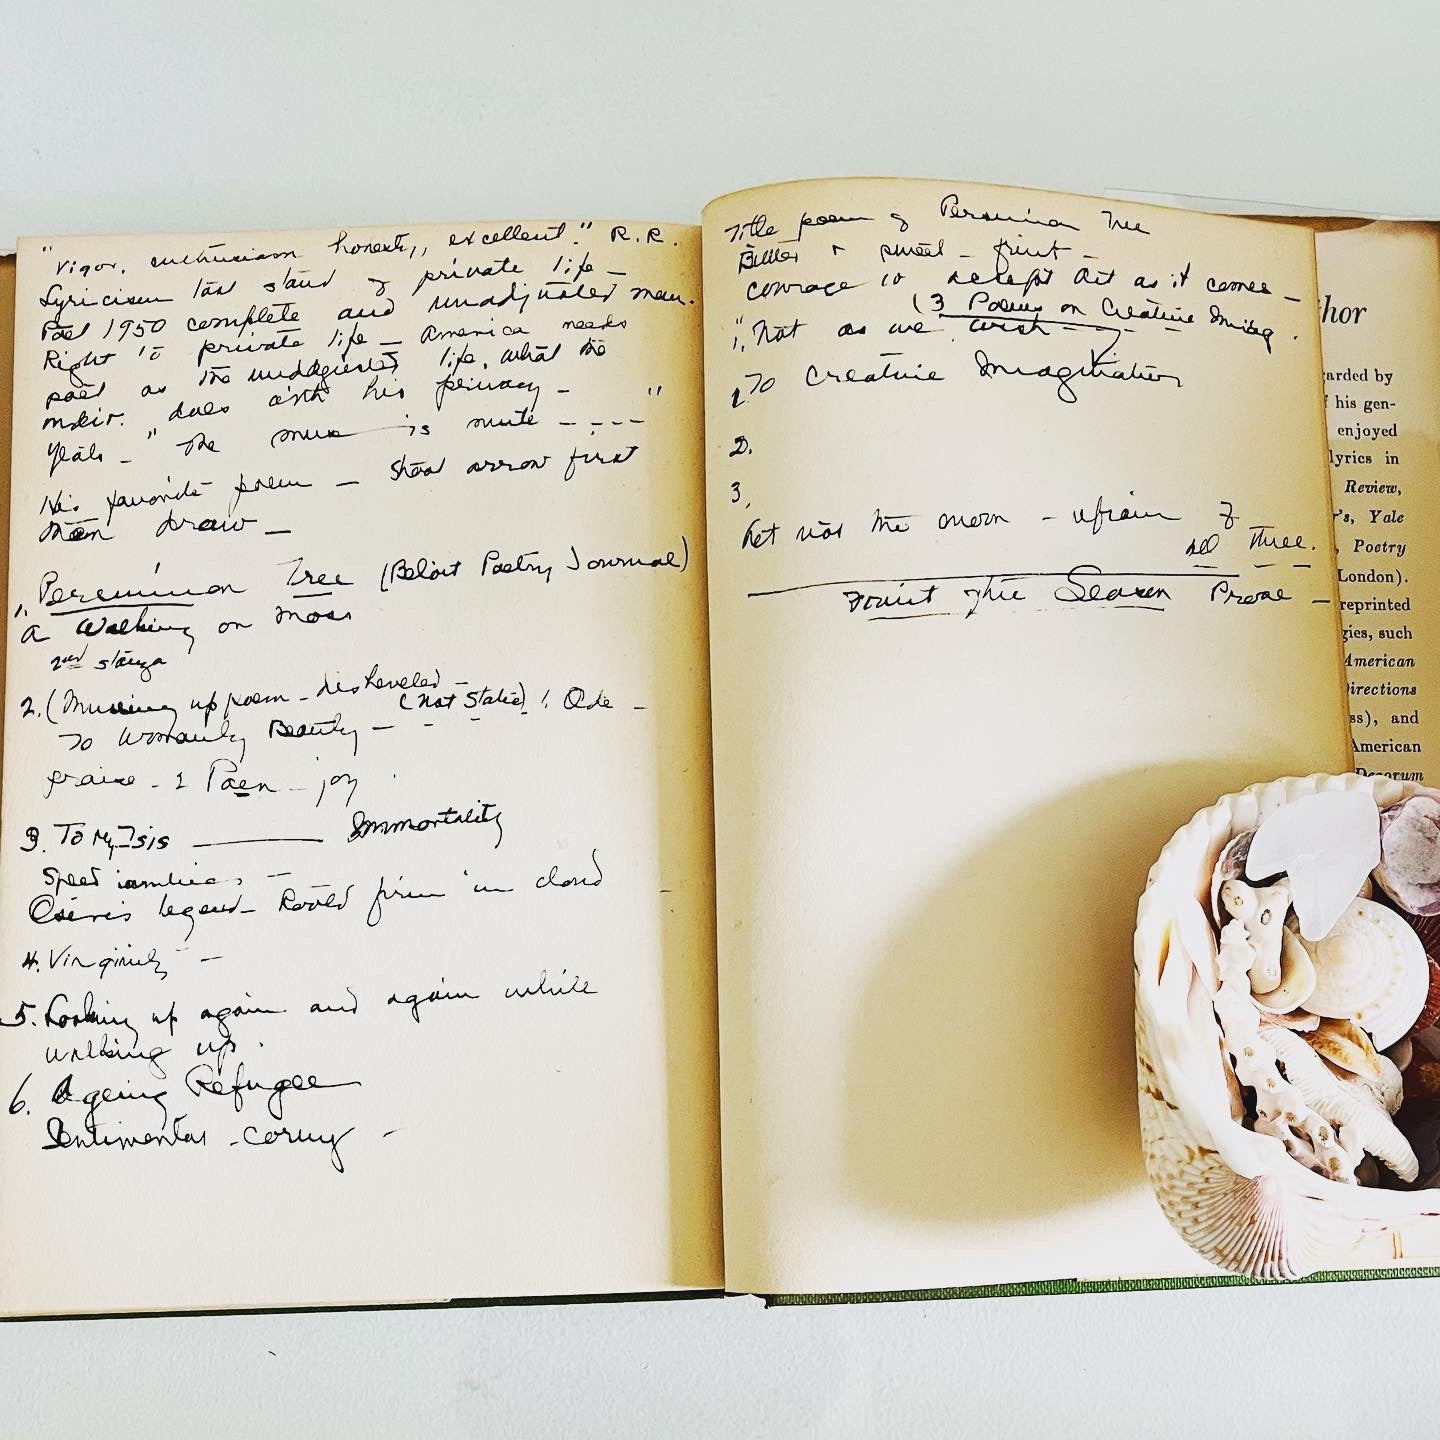 "Vigor, enthusiasm honesty, excellent." R.R.
Lyricism last stand of private life –
Poet 1950 complete and unadjusted man.
Right to private life – America needs
poet as the unadjusted life, what the
indiv. "does with his privacy –
Yeats – "The muse is mute – – – – "
His favorite poem – Shoot arrow first
then draw –
1. Persimmon Tree (Beloit Poetry Journal)
a Walking on Moss
2nd stanza
2. (Mussing up poem – disheveled –
(Not Static) ! Ode –
To Womanly Beauty –
praise – Paen – joy
3. To My Isis ——— Immortality
Speed iambics –
Osiris legend – in cloud
4. Virginity –
5. Looking up again and again while
walking up.
6. Ageing Refugee
Sentimental – corny –
Title poem of Persimmon Tree
Bitter & sweet – fruit –
courage to accept Art as it comes –
(3 Poems on Creative Imag.
1. "Not as we wish –
1. To Creative Imagination
2.
3.
Let not the moon – refrain of
all three.
Fruit of the Season Prose –
hor
arded by
his gen-
enjoyed
lyrics in
Review,
's, Yale
, Poetry
London).
reprinted
gies, such
American
Directions
ss), and
American
Decorum